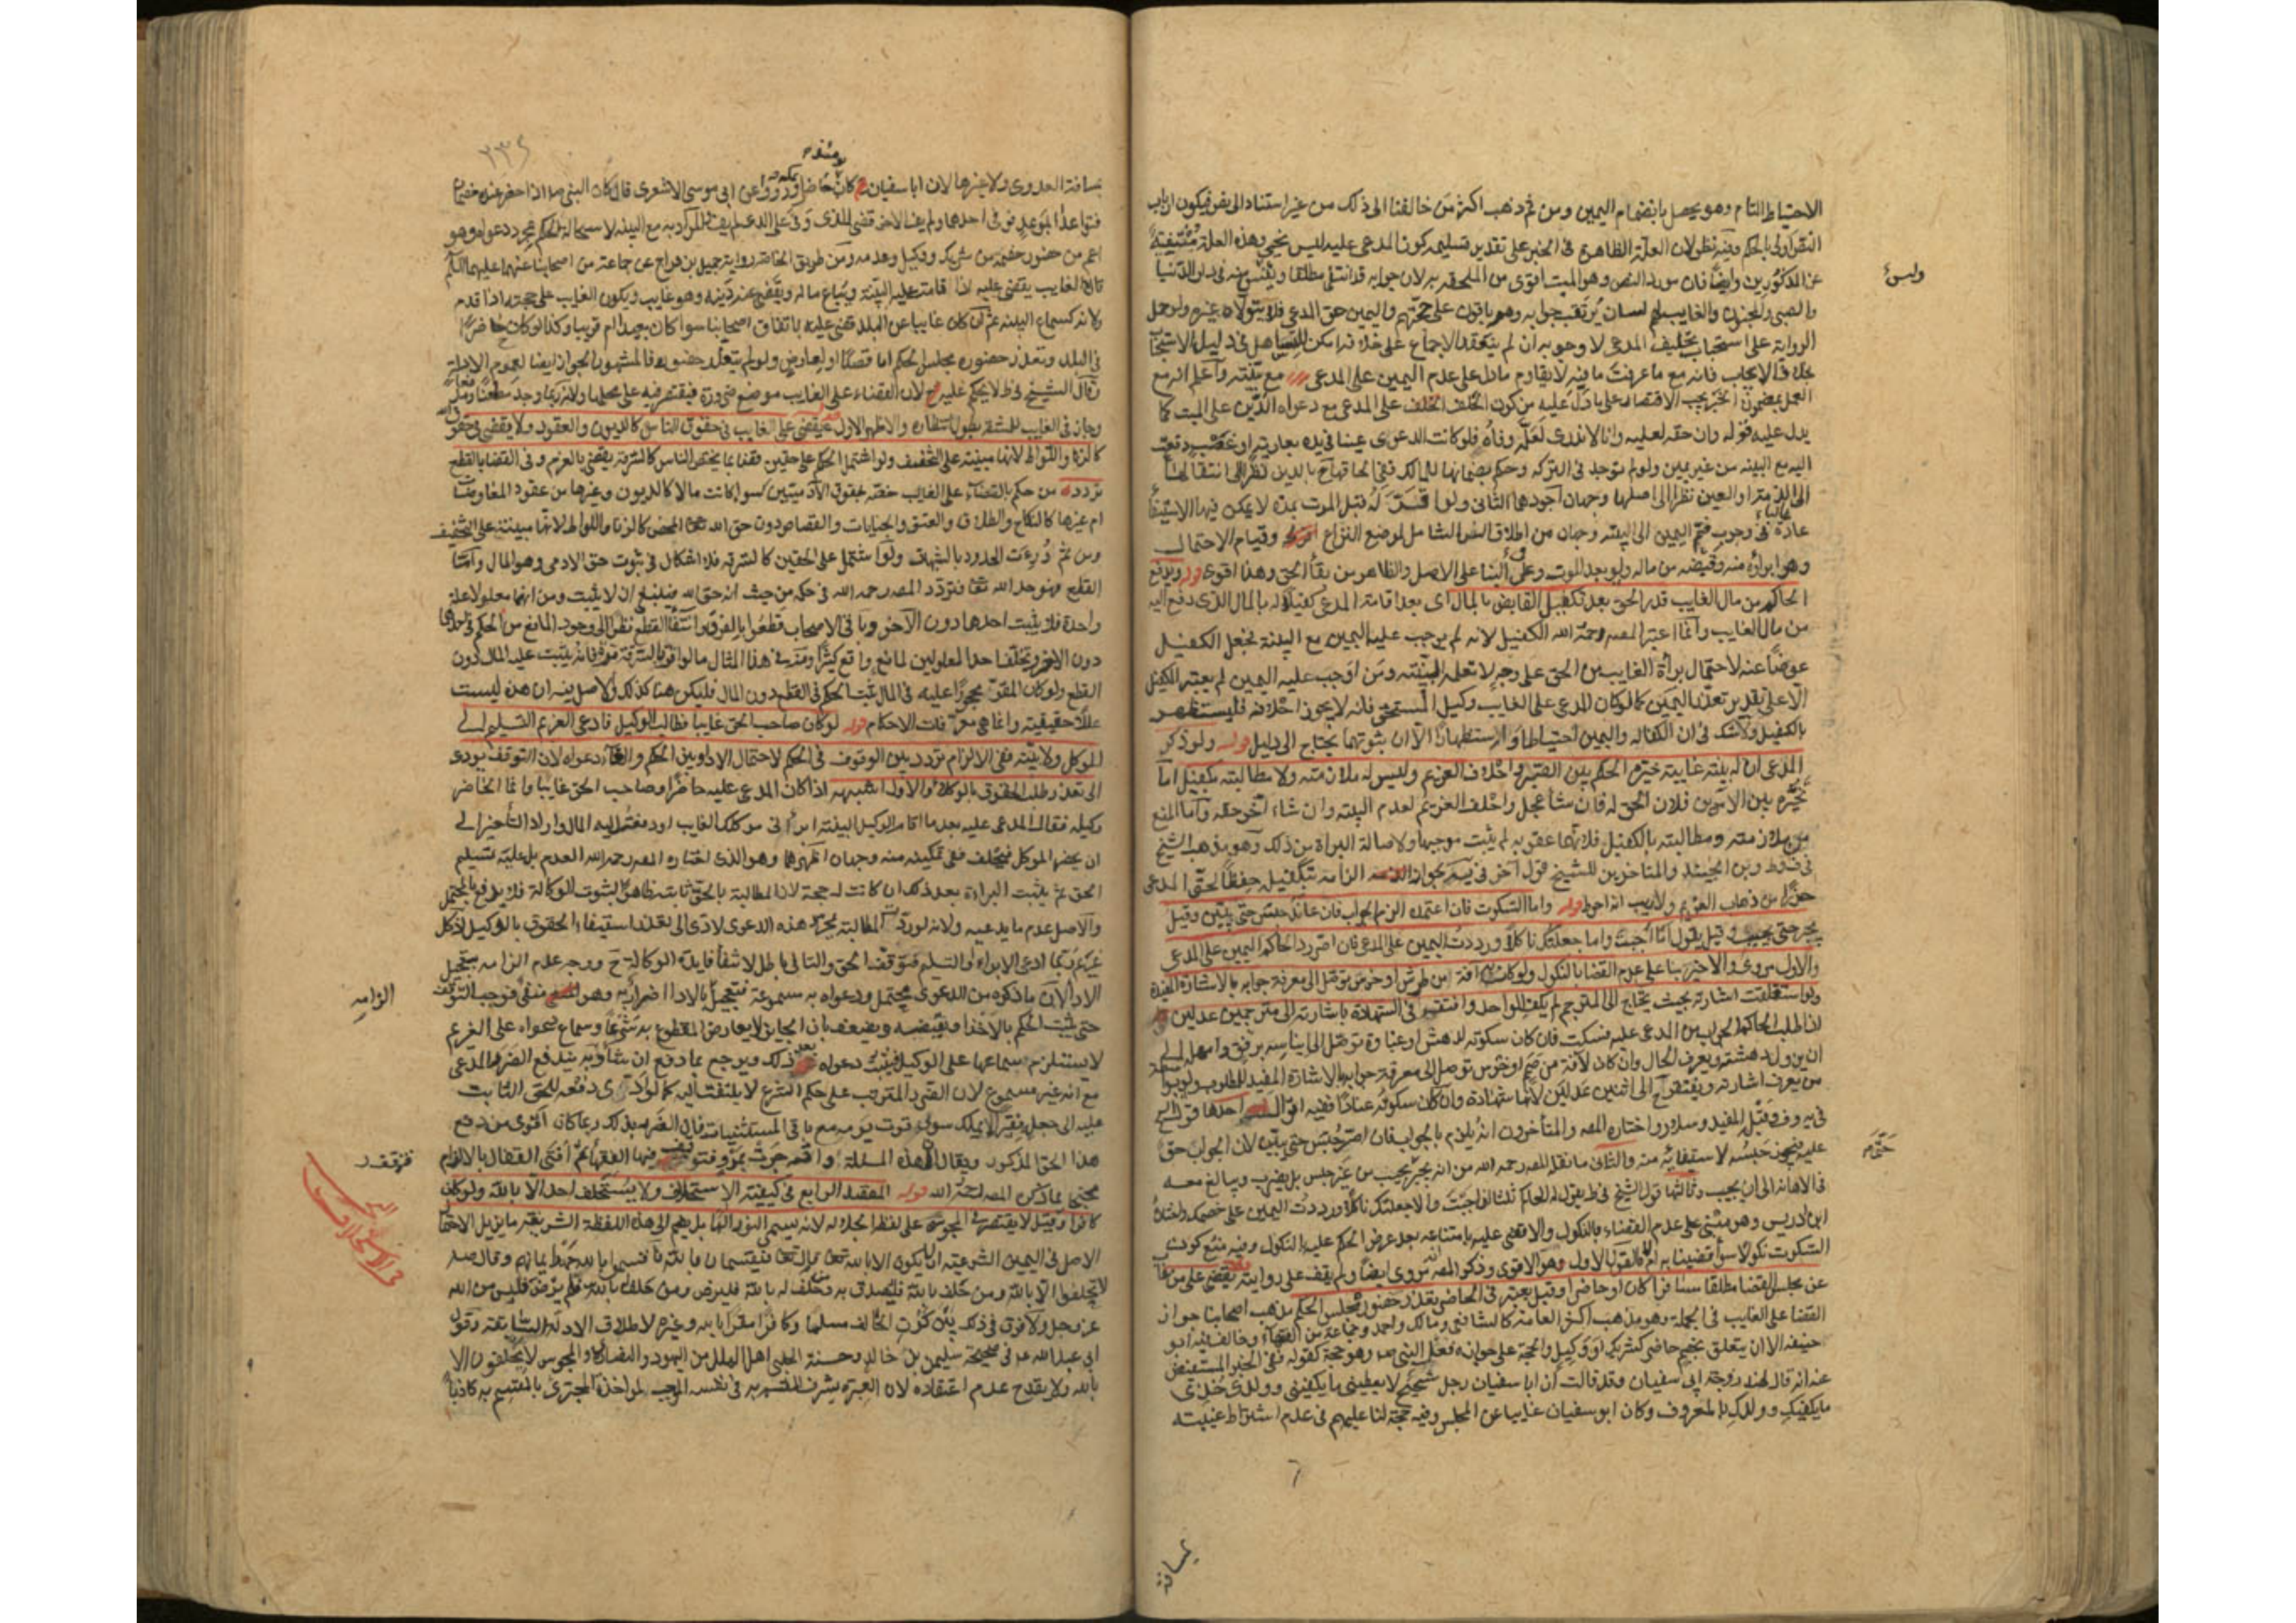 الاحتياط التام وهو يحصل بانضمام اليمين ومن ثم ذهب اكثر من خالفنا الى ذلك من غير استناد الى نص فيكون ارباب
النص اولى بالحكم وفيه نظر لان العلة الظاهرة في الخبر على تقدير تسليمه كون المدعى عليه ليس بحي وهذه العلة منتفية
عن المذكورين وايضا فان مورد النص وهو الميت اقوى من الملحق به لان جوابه قد انتفى مطلقا في دار الدنيا
وليس
والصبي والمجنون والغايب لهم لسان يرتقب جوابه وهم باقون على حجتهم واليمين حق المدعى فلا يتولاه غيره ولو حمل
الرواية على استحباب تحليف المدعي لا وجوبه ان لم ينعقد الاجماع على خلافه امكن للتساهل في دليل الاستحباب
بخلاف الايجاب فانه مع ما عرفت ما فيه لا يقاوم ما دل على عدم اليمين على المدعي مع بينته واعلم انه مع
العمل بمضمون الخبر يجب الاقتصار على ما دل عليه من كون الحلف على المدعي مع دعواه الدين على الميت كما
يدل عليه قوله وان حقه لعليه وانا لا ندري لعله وفاه فلو كانت الدعوى عينا في يده بعارية او غصب دفعت
اليه مع البينه من غير يمين ولو لم توجد في التركه وحكم بضمانها للمالك ففي الحاقها ح بالدين نظرا الى انتقالها
الى الذمة او العين نظرا الى اصلها وجهان اجودهما الثاني ولو اقر له قبل الموت بمدة لا يمكن فيها الاستيفاء
عادة ففي وجوب ضم اليمين الى البينه وجهان من اطلاق النص الشامل لموضع النزاع وقيام الاحتمال
وهو ابراؤه منه وقبضه من ماله ولو بعد الموت وعلى البنا على الاصل والظاهر من بقاء الحق وهذا اقوى قوله ويدفع
الحاكم من مال الغايب قدر الحق بعد تكفيل القابض بالمال اى بعد اقامة المدعي كفيلا له بالمال الذي دفع اليه
من مال الغايب وانما اعتبر المصه رحمة الله الكفيل لانه لم يوجب عليه اليمين مع البينة فجعل الكفيل
عوضا عنه لاحتمال براءة الغايب من الحق على وجه لا تعلمه البينه ومن اوجب عليه اليمين لم يعتبر الكفيل
الا على تقدير تعذر اليمين كما لو كان المدعي على الغايب وكيل المستحق فانه لا يجوز احلافه فليستظهر
بالكفيل ولا شك في ان الكفاله واليمين احتياطا واستظهارا الا ان ثبوتهما يحتاج الى دليل قوله ولو ذكر
المدعي ان له بينة غايبة خيره الحكم بين الصبر واحلاف الغريم وليس له ملازمته ولا مطالبته بكفيل اما
تخيره بين الامرين فلان الحق له فان شاء عجل واحلف الغريم لعدم البينه وان شاء اخر حقه واما المنع
من ملازمته ومطالبته بالكفيل فلانهما عقوبه لم يثبت موجبها ولاصالة البراة من ذلك وهو مذهب الشيخ
في ف وط وبن الجنيد والمتاخرين للشيخ قول آخر في يه بجواز الزامه بكفيل حفظا لحق المدعي
حذرا من ذهاب الغريم ولا ريب انه احوط قوله واما السكوت فان اعتمده الزم الجواب فان عاند حبس حتى يبين وقيل
يجبر حتى يجيب وقيل يقول اما اجبت واما جعلتك ناكلا ورددت اليمين على المدعي فان اصر رد الحاكم اليمين على المدعي
والاول مروي والاخير بنا على عدم القضا بالنكول ولو كان به آفة من طرش او خرس توصل الى معرفة جوابه بالاشارة المفيدة
ولو استغلقت اشارته بحيث يحتاج الى المترجم لم يكف الواحد وافتقر في الشهادة باشارته الى مترجمين عدلين قوله
اذا طلب الحاكم الجواب من المدعى عليه فسكت فان كان سكوته لدهش او غباوة توصل الى ايناسه برفق وامهله الى
ان يزول دهشته ويعرف الحال وان كان لآفة من صمم او خرس توصل الى معرفة جوابه بالاشارة المفيدة للمطلوب
من يعرف اشارته ويفتقر ح الى اثنين عدلين لانها شهادة وان كان سكوته عنادا ففيه اقوال احدها قول الشيخ
في يه وف وقيل المفيد وسلار واختاره المصه والمتأخرون انه يلزم بالجواب فان اصر حبس حتى يبين لان الجواب حق
حتم
عليه فيجوز حبسه لاستيفائه منه والثاني ما نقله المصه رحمه الله من انه يجبر حتى يجيب من غير حبس بل يضرب ويبالغ معه
في الاهانه الى ان يجيب وثالثها قول الشيخ في ط يقول له الحاكم ثلثا اما اجبت والا جعلتك ناكلا ورددت اليمين على خصمك واختاره
ابن ادريس وهو مبني على عدم القضاء بالنكول والا قضى عليه بامتناعه بعد عرض الحكم عليه بالنكول وفيه منع كون
السكوت نكولا سواء قضينا به ام لا فالقول الاول وهو الاقوى وذكر المصه انه مروى ايضا ولم يقف على روايته قوله يقضى على من غاب
عن مجلس القضا مطلقا مسافرا كان او حاضرا وقيل يعتبر في الحاضر تعذر حضوره مجلس الحكم مذهب اصحابنا جواز
القضا على الغايب في الجملة وهو مذهب اكثر العامة كالشافعي ومالك واحمد وجماعة من الفقهاء وخالف فيه ابو
حنيفه الا ان يتعلق بخصم حاضر كشريك او وكيل والحجة على جوازه فعل النبي صه وهو حجة كقوله ففي الخبر المستفيض
عنه انه قال لهند زوجة ابي سفيان وقد قالت ان ابا سفيان رجل شحيح لا يعطيني ما يكفيني وولدي خذي
ما يكفيك وولدك بالمعروف وكان ابو سفيان غايبا عن المجلس وفيه حجة لنا عليهم في عدم اشتراط غيبته
بمسافة
٢٣٤
بمسافة العدوى ولا غيرها لان ابا سفيان كان حاضرا بمكه وروى عن ابي موسى الاشعري قال كان النبي صه اذا حضر عنده خصمان
فتواعدا الموعد فوفى احدهما ولم يف الاخر قضى للذي وفى على الذي لم يف المراد به مع البينه لاستحالة الحكم بمجرد دعواه وهو
اعم من حضور خصمه من شريك ووكيل وعدمه ومن طريق الخاصه رواية جميل بن دراج عن جماعة من اصحابنا عنهما عليهما السلم
قال الغايب يقضى عليه اذا قامت عليه البينة ويباع ماله ويقضى عنه دينه وهو غايب ويكون الغايب على حجته اذا قدم
ولانه كسماع البينه ثم ان كان غايبا عن البلد قضى عليه باتفاق اصحابنا سواء كان بعيدا ام قريبا وكذا لو كان حاضرا
في البلد وتعذر حضوره مجلس الحكم اما قصدا او لعارض ولو لم يتعذر حضوره فالمشهور الجواز ايضا لعموم الادلة
وقال الشيخ في ط لا يحكم عليه ح لان القضاء على الغايب موضع ضرورة فيقتصر فيه على محلها ولانه ربما وجد مطعنا
وجاز في الغايب للمشقة بطول انتظاره والاظهر الاول قوله يقضى على الغايب في حقوق الناس كالديون والعقود ولا يقضى في حقوق الله
كالزنا واللواط لانها مبنية على التخفيف ولو اشتمل الحكم على حقين قضنا بما يختص الناس كالسرقة يقضى بالغرم وفي القضا بالقطع
تردد من حكم بالقضاء على الغايب خصه بحقوق الآدميين سوا كانت مالا كالديون وغيرها من عقود المعاوضات
ام غيرها كالنكاح والطلاق والعتق والجنايات والقصاص دون حق الله تعا المحض كالزنا واللواط لانها مبنية على التخفيف
ومن ثم درءت الحدود بالشبهات ولو اشتمل على الحقين كالسرقه فلا اشكال في ثبوت حق الادمي وهو المال واما
القطع فهو حد الله تعا فتردد المصه رحمه الله في حكمه من حيث انه حق الله فينبغي ان لا يثبت ومن انهما معلولا علة
واحدة فلا يثبت احدهما دون الآخر وباقي الاصحاب قطعوا بالفرق وانتفاء القطع نظرا الى وجود المانع من الحكم في احدهما
دون الاخر وتخلف احد المعلولين لمانع واقع كثيرا ومنه في هذا المثال ما لو اقر بالسرقة مرة فانه يثبت عليه المال دون
القطع ولو كان المقر محجورا عليه في المال ثبت الحكم في القطع دون المال فليكن هنا كذلك والاصل فيه ان هذه ليست
عللا حقيقيه وانما هي معرفات الاحكام قوله لو كان صاحب الحق غايبا فطالب الوكيل فادعى الغريم التسليم الى
الموكل ولا بينه ففي الالزام تردد بين الوقوف في الحكم لاحتمال الاداء وبين الحكم والغاء دعواه لان التوقف يؤدي
الى تعذر طلب الحقوق بالوكلاء والاول اشبه اذا كان المدعى عليه حاضرا وصاحب الحق غايبا وانما الحاضر
وكيله فقال المدعى عليه بعد ما اقام الوكيل البينه ابرأني موكلك الغايب او دفعت اليه المال واراد التأخير الى
ان يحضر الموكل فيحلف ففي تمكينه منه وجهان اظهرهما وهو الذي اختاره المصه رحمه الله العدم بل عليه تسليم
الحق ثم يثبت البراءة بعد ذلك ان كانت له حجة لان المطالبة بالحق ثابته ظاهرا لثبوت الوكالة فلا يدفع بالمحتمل
والاصل عدم ما يدعيه ولانه لو وقفت المطالبة بمجرد هذه الدعوى لادى الى تعذر استيفاء الحقوق بالوكيل اذ كل
غريم ربما ادعى الابراء او التسليم فتوقف الحق والتالي باطل لانتفاء فايدة الوكالة ح ووجه عدم الزامه بتعجيل
الزامه
الاداء لان ما ذكره من الدعوى محتمل ودعواه به مسموعة فتعجيل الاداء اضرار به وهو منفي فوجب التوقف
حتى يثبت الحكم بالاخذ او نقيضه ويضعف بان الجايز لا يعارض المقطوع به شرعا وسماع دعواه على الغريم
لا يستلزم سماعها على الوكيل فيثبت دعواه بعد ذلك ويرجع بما دفع ان شاء وبه يندفع الضرر المدعى
مع انه غير مسموع لان الضرر المترتب على حكم الشرع لا يلتفت اليه كما لو ادى دفعه للحق الثابت
عليه الى جعل فقيرا لا يملك سوى قوت يومه مع باقي المستثنيات فان الضرر بذلك ربما كان اقوى من دفع
هذا الحق المذكور ويقال ان هذه المسئلة واقعه جرت بمرو فتوقف فيها الفقهاء ثم افتى القفال بالالزام
فتوقف
محتجا بما ذكره المصه رحمة الله قوله المقصد الرابع في كيفية الاستحلاف ولا يستحلف احد الا بالله ولو كان
كافرا وقيل لا يقتصر في المجوسي على لفظ الجلاله لانه يسمي النور الها بل يضم الى هذه اللفظة الشريفة ما يزيل الاحتمال
الاصل في اليمين الشرعية ان لا يكون الا بالله تعا قال تعا فيقسمان بالله واقسموا بالله جهد ايمانهم وقال صه
لا تحلفوا الا بالله ومن حلف بالله فليصدق ومن حلف له بالله فليرض ومن حلف بالله فلم يرض فليس من الله
عز وجل ولا فرق في ذلك بين كون الحالف مسلما وكافرا مقرا بالله وغيره لاطلاق الادله السابقة وقول
ابي عبد الله ع في صحيحة سليمن بن خالد وحسنة الحلبي اهل الملل من اليهود والنصارى والمجوس لا يحلفون الا
بالله ولا يقدح عدم اعتقاده لان العبرة بشرف المقسم به في نفسه الموجب لمواخذة المجتري بالقسم به كاذبا